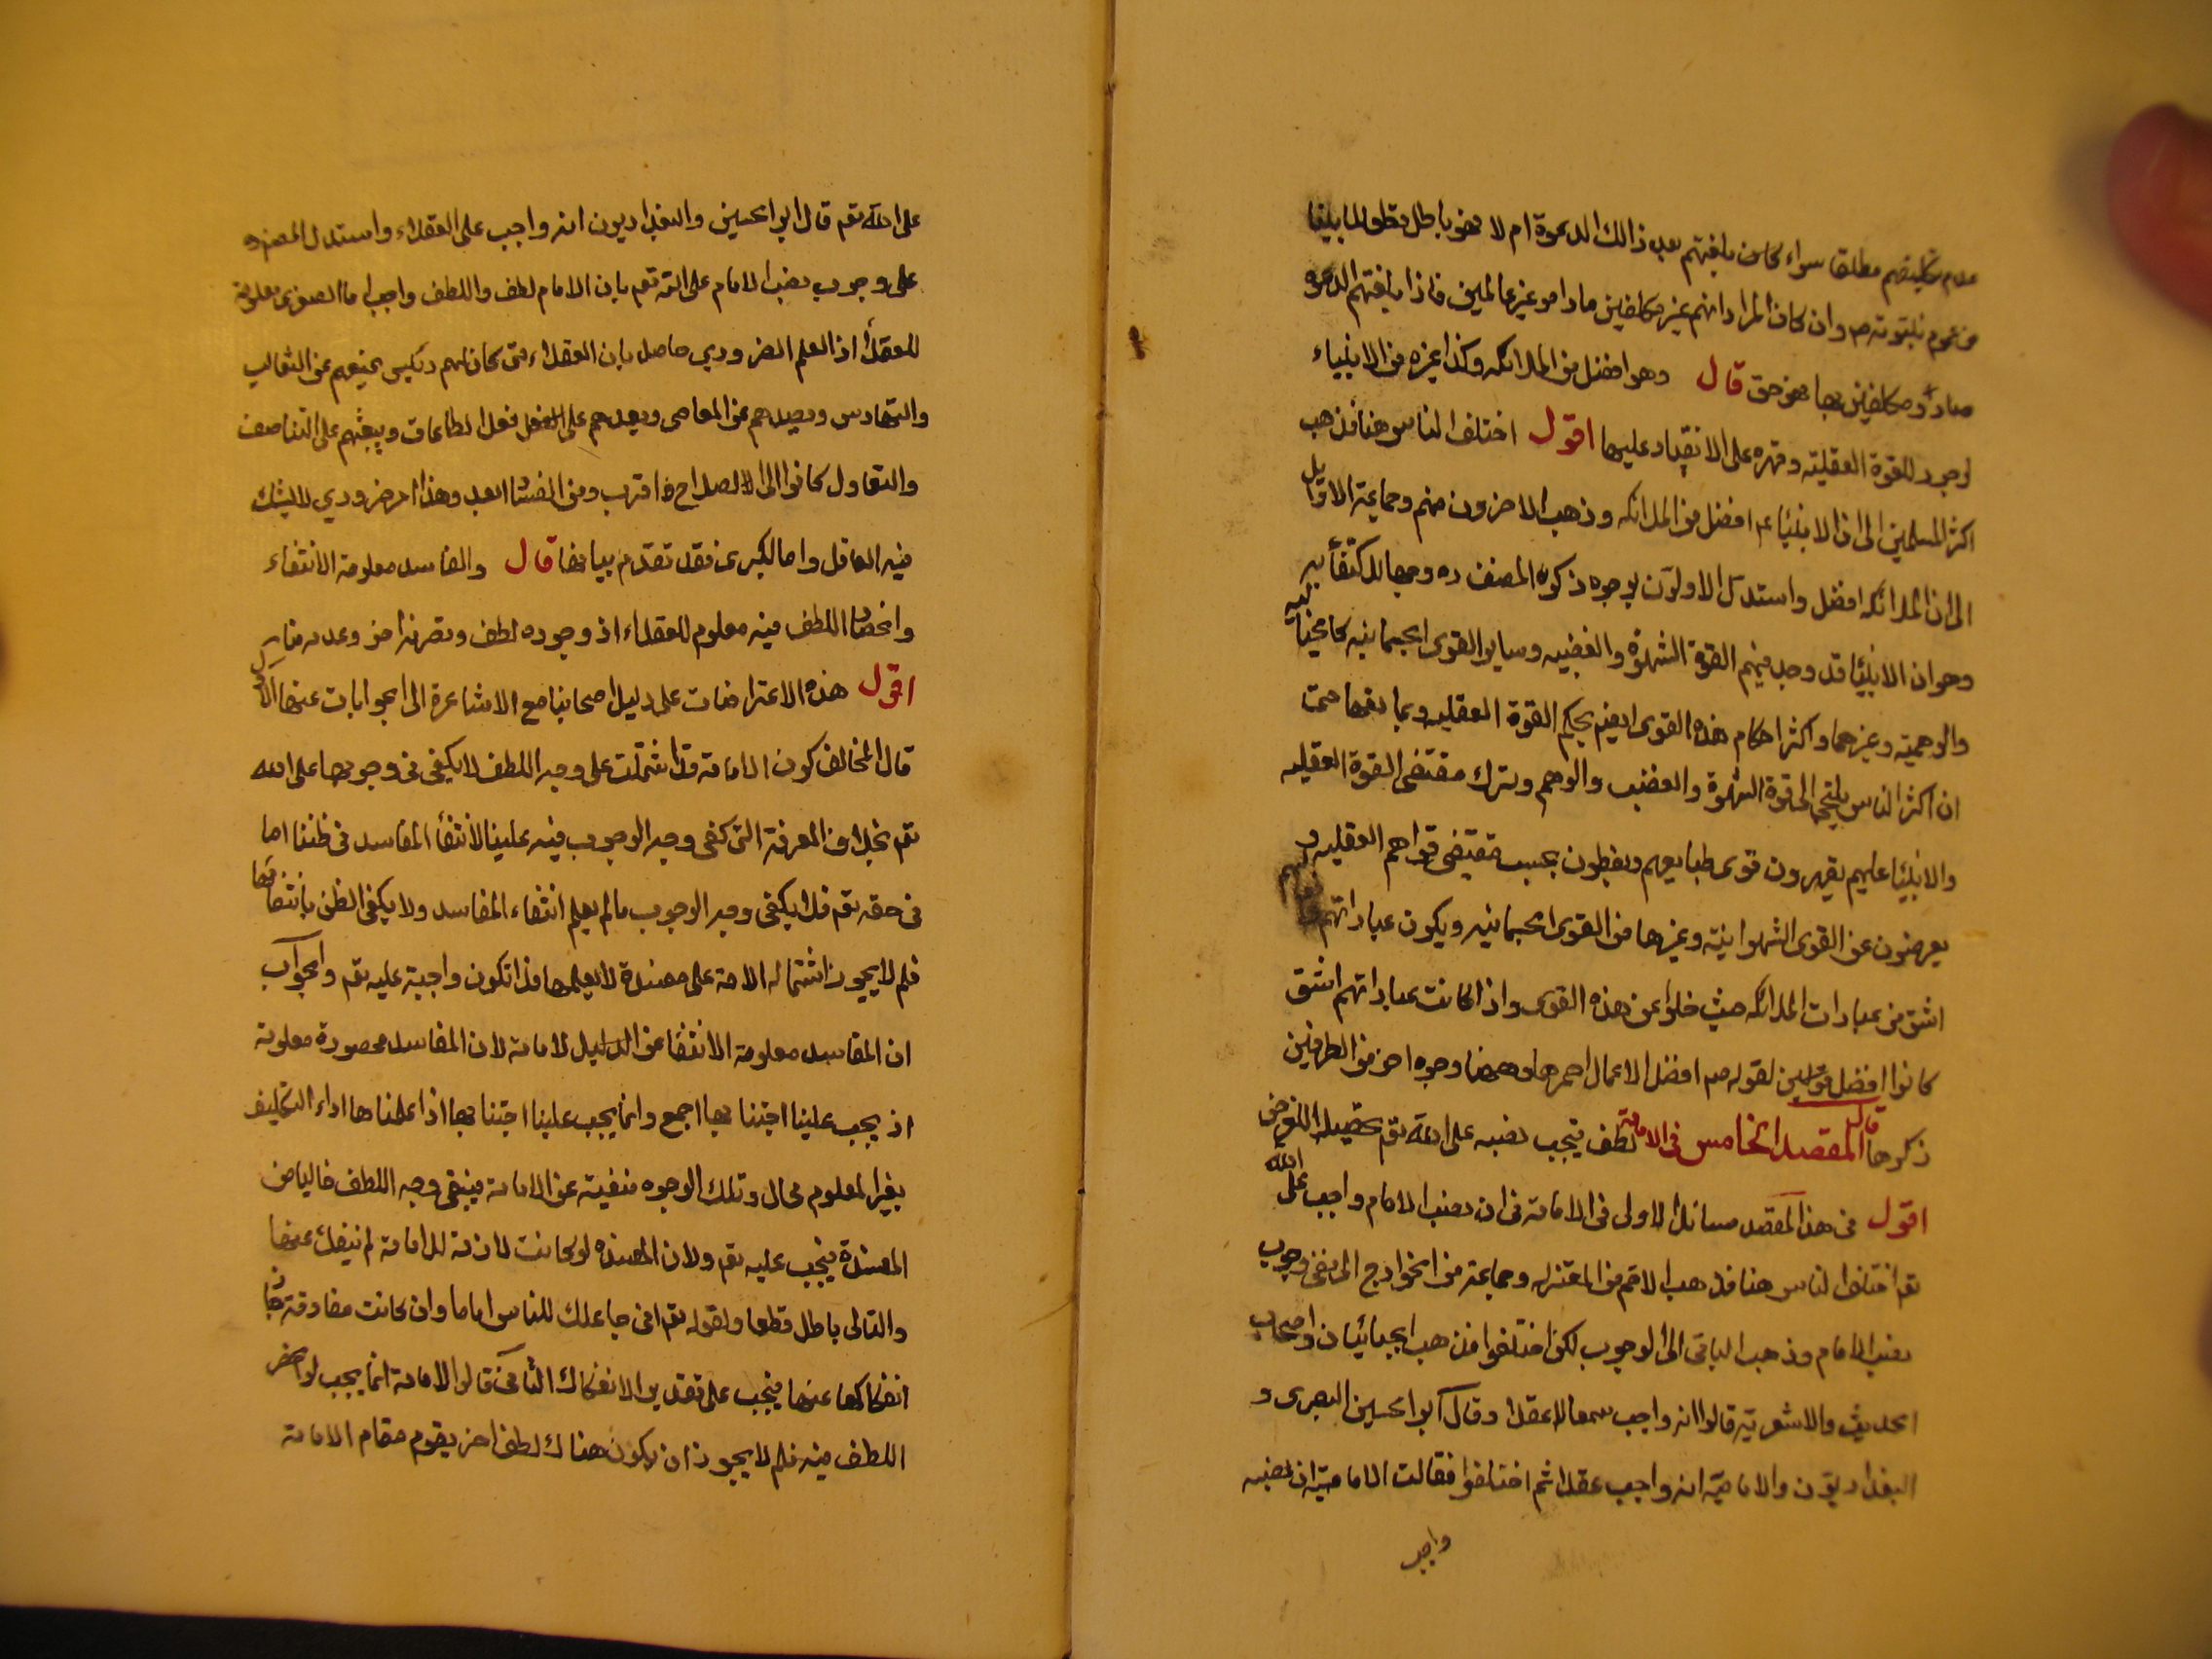 عدم تكليفهم مطلقا سواء كان بلغتهم بعد ذالك الدعوة ام لا فهو باطل قطعا لما بينا
من عموم نبوته ص وان كان المراد انهم غير مكلفين ما داموا غير عالمين فاذا بلغتهم الدعوة
صاروا مكلفين بها فهو حق قال وهو افضل من الملائكه وكذا غيره من الانبياء
لوجود للقوة العقليته وقهره على الانقياد عليها اقول اختلف الناس هنا فذهب
اكثر المسلمين الى ان الانبياء ع افضل من الملائكه وذهب الاخرون منهم وجماعة الاوايل
الى ان الملائكه افضل واستدل الاولون بوجوه ذكره المصنف ره وجها للاكتفاء به
وهو ان الانبياء قد وجد فيهم القوة الشهوة والغضبيه وساير القوى الجسمانيه كالخيالية
والوهمية وغيرهما واكثر احكام هذه القوى ايضم بحكم القوة العقليه وممانعها حتى
ان اكثر الناس يلتجئ الى قوة الشهوة والغضب والوهم ويترك مقتضى القوة العقليه
والانبياء عليهم يقهرون قوى طبايعهم ويفعلون بحسب مقتضى قواهم العقليه و
يعرضون عن القوى الشهوانية وغيرها من القوى الجسمانيه ويكون عباداتهم
اشق من عبادات الملائكه حيث خلوا عن هذه القوى واذا كانت عباداتهم اشق
كانوا افضل لقوله ص افضل الاعمال احمزها وههنا وجوه اخر من الطرفين
ذكرها قال المقصد الخامس فى الامامة لطف فيجب نصبه على الله تعم تحصيلا للغرض
اقول فى هذا المقصد مسائل الاولى فى الامامة فى ان نصب الامام واجب على الله
تعم اختلف الناس هنا فذهب الاصم من المعتزله وجماعة من الخوارج الى نفى وجوب
نصب الامام وذهب الباقى الى الوجوب لكن اختلفوا فذهب الجبائيان واصحاب
الحديث والاشعرية قالوا انه واجب سمعا لا عقلا وقال ابو الحسين البصرى و
البغداديون والامامية انه واجب عقلا ثم اختلفوا فقالت الامامية ان نصبه
واجب
على الله تعم قال ابو الحسين والبغداديون انه واجب على العقلاء واستدل المصنف ره
على وجوب نصب الامام على الله تعم بان الامام لطف واللطف واجب اما الصغرى معلومة
للعقلاء اذ العلم الضرورى حاصل بان العقلاء متى كان لهم رئيس يمنعهم عن التغالب
والتهارش ويصدهم عن المعاصى ويعدهم على الفعل فعل الطاعات ويبعثهم على التناصف
والتعادل كانوا الى الصلاح اقرب ومن الفساد ابعد وهذا امر ضرورى لا يشك
فيه العاقل واما الكبرى فقد تقدم بيانها قال والفاسد معلومة الانتفاء
وانحصار اللطف فيه معلوم للعقلاء اذ وجوده لطف وتصرفه اخر وعدمه منا
اقول هذه الاعتراضات على دليل اصحابنا مع الاشاعرة الى الجوابات عنها الاول
قال المخالف كون الامامة قد اشتملت على وجه اللطف لا يكفى فى وجوبها على الله
تعم بخلاف المعرفة التى كفى وجه الوجوب فيه علينا لانتفاء المفاسد فى ظننا اما
فى حقه تعم فلا يكفى وجه الوجوب مالم يعلم انتفاء المفاسد ولا يكفى الظن بانتفائها
فلم لا يجوز اشتماله الامة على مفسدة لا يعلمها فلا تكون واجبة عليه تعم والجواب
ان المفاسد معلومة الانتفا عن الامامة لان المفاسد محصورة معلومة
اذ يجب علينا اجتنابها اجمع وانما يجب علينا اجتنابها اذا علمناها اداء التكليف
بغير المعلوم محال وتلك الوجوه منفية عن الامامة فيبقى وجه اللطف خاليا من
المفسدة فيجب عليه تعم ولان المفسده لو كانت لازمة للامامة لم ينفك عنها
والتالى باطل قطعا ولقوله تعم انى جاعلك للناس اماما وان كانت مفارقة جاز
انفكاكها عنها فيجب على تقدير الانفكاك الثانى قالوا الامامة انما يجب لو انحصر
اللطف فيه فلم لا يجوز ان يكون هناك لطف اخر يقوم مقام الامامة